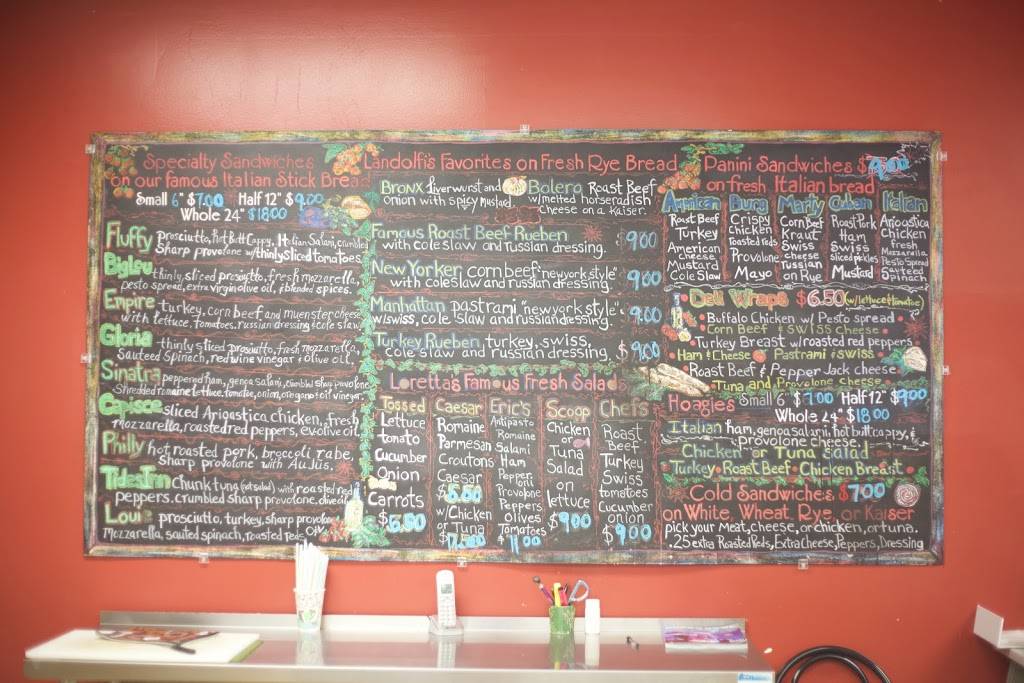 Specialty Sandwiches
on our famous Italian Stick Bread
Small 6" $7.00 Half 12" $9.00
Whole 24" $18.00
Fluffy prosciutto, Hot Butt Cappy, Italian Salami, crumbled
sharp provolone w/thinly sliced tomatoes.
Biglou thinly sliced prosciutto, fresh mozzarella,
pesto spread, extra virgin olive oil, & blended spices.
Empire - turkey, corn beef, and muenster cheese
with lettuce, tomatoes, russian dressing & cole slaw
Gloria - thinly sliced prosciutto, fresh mozzarella,
sauteed Spinach, red wine vinegar & olive oil
Sinatra peppered ham, genoa salami, crumbled sharp provolone
Shredded romaine lettuce, tomatoe, onion, oregano & oil vinegar
Capisce sliced Arigastica chicken, fresh
Mozzarella, roasted red peppers, ev.olive oil
Philly hot roasted pork, broccoli rabe,
sharp provolone with Au Jus.
Tides Inn Chunk tuna with roasted red
peppers, crumbled sharp provolone, olive oil
Louie prosciutto, turkey, sharp provolone
Mozzarella, sauteed spinach, roasted reds, Oil
Landolfi's Favorites on Fresh Rye Bread
Bronx Liverwurst and
onion with spicy Mustard
Bolero Roast Beef
w/melted horseradish
cheese on a Kaiser.
Famous Roast Beef Rueben
with cole slaw and russian dressing. 9.00
New Yorker corn beef "new york style"
with coleslaw and russian dressing. 9.00
Manhattan pastrami "new york style"
w/swiss, cole slaw and russian dressing. 9.00
Turkey Rueben turkey, swiss,
cole slaw and russian dressing. $9.00
Loretta's Famous Fresh Salads
Tossed
Lettuce
tomato
Cucumber
Onion
&
Carrots
$6.50
Caesar
Romaine
Parmesan
Croutons
Caesar
w/Chicken
or Tuna
Eric's
Antipasto
Romaine
Salami
Ham
Pepper.
on
Provolone
Peppers
olives
Tomatoes
$11.00
Scoop
Chicken
or
Tuna
Salad
on
lettuce
$9.00
Chefs
Roast
Beef
Turkey
Swiss
tomatoes
Cucumber
onion
$9.00
Panini Sandwiches $9.00
on fresh Italian bread
American
Roast Beef
Turkey
American
cheese
Mustard
Cole Slaw
Burg
Crispy
Chicken
Roasted reds
Provolone
Mayo
Marty
Corn Beef
Kraut
Swiss
cheese
Russian
on Rye
Cuban
Roast Pork
Ham
Swiss
sliced pickles
Mustard
Italian
Arigastica
Chicken
fresh
Mozzarella
Pesto Spread
Sauteed
Spinach
Deli Wraps $6.50 (w/lettuce & tomatoe)
Buffalo Chicken w/ Pesto spread
Corn Beef & swiss cheese
Turkey Breast w/roasted red peppers
Ham & Cheese Pastrami & swiss
Roast Beef & Pepper Jack cheese
Tuna and Provolone cheese
Hoagies Small 6" $7.00 Half 12" $9.00
Whole 24" $18.00
Italian ham, genoa salami, hot butt cappy, &
provolone cheese.
Chicken or Tuna Salad
Turkey Roast Beef Chicken Breast
Cold Sandwiches $7.00
on White, Wheat, Rye, or Kaiser
pick your Meat, cheese, or chicken, or tuna.
.25 extra Roasted Reds, Extra Cheese, Peppers, Dressing